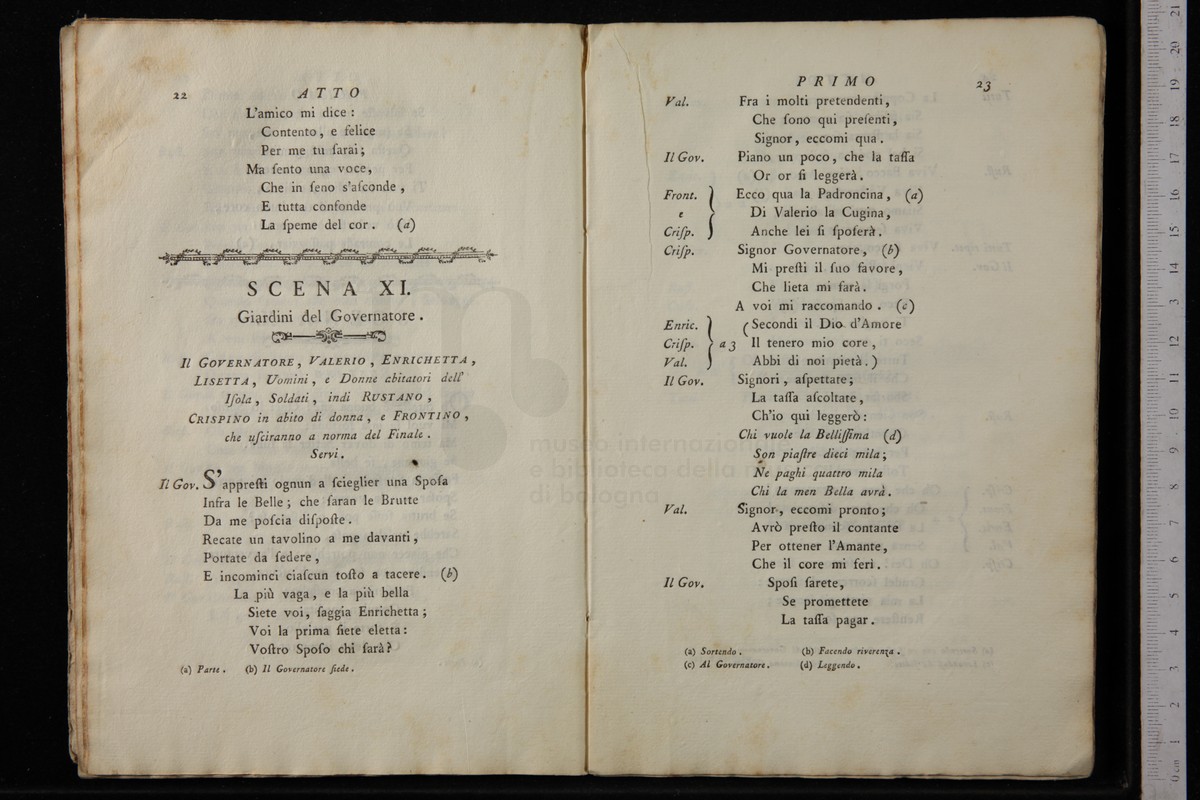 22 ATTO
L'amico mi dice :
Contento, e felice
Per me tu ſarai;
Ma ſento una voce,
Che in ſeno s'aſconde ,
E tutta confonde
La ſpeme del cor . (a)
SCENA XI.
Giardini del Governatore .
Il GOVERNATORE , VALERIO , ENRICHETTA ,
LISETTA , Uomini , e Donne abitatori dell'
Iſola , Soldati , indi RUSTANO ,
CRISPINO in abito di donna , e FRONTINO ,
che uſciranno a norma del Finale .
Servi .
Il Gov. S'appreſti ognun a ſcieglier una Spoſa
Infra le Belle ; che ſaran le Brutte
Da me poſcia diſpoſte .
Recate un tavolino a me davanti ,
Portate da ſedere ,
E incominci ciaſcun toſto a tacere . (b)
La più vaga , e la più bella
Siete voi, ſaggia Enrichetta ;
Voi la prima ſiete eletta :
Voſtro Spoſo chi ſarà ?
(a) Parte . (b) Il Governatore ſiede .
PRIMO 23
Val. Fra i molti pretendenti ,
Che ſono qui preſenti ,
Signor , eccomi qua .
Il Gov. Piano un poco , che la taſſa
Or or ſi leggerà .
Front. Ecco qua la Padroncina , (a)
e Di Valerio la Cugina ,
Criſp. Anche lei ſi ſpoſerà .
Criſp. Signor Governatore , (b)
Mi preſti il ſuo favore ,
Che lieta mi farà .
A voi mi raccomando . (c)
Enric. ( Secondi il Dio d'Amore
Criſp. a 3 Il tenero mio core ,
Val. Abbi di noi pietà . )
Il Gov. Signori , aſpettate ;
La taſſa aſcoltate ,
Ch'io qui leggerò :
Chi vuole la Belliſſima (d)
Son piaſtre dieci mila ;
Ne paghi quattro mila
Chi la men Bella avrà .
Val. Signor , eccomi pronto ;
Avrò preſto il contante
Per ottener l'Amante ,
Che il core mi ferì .
Il Gov. Spoſi ſarete ,
Se promettete
La taſſa pagar .
(a) Sortendo . (b) Facendo riverenza .
(c) Al Governatore . (d) Leggendo .
museo internazionale
e biblioteca della m
di bologna